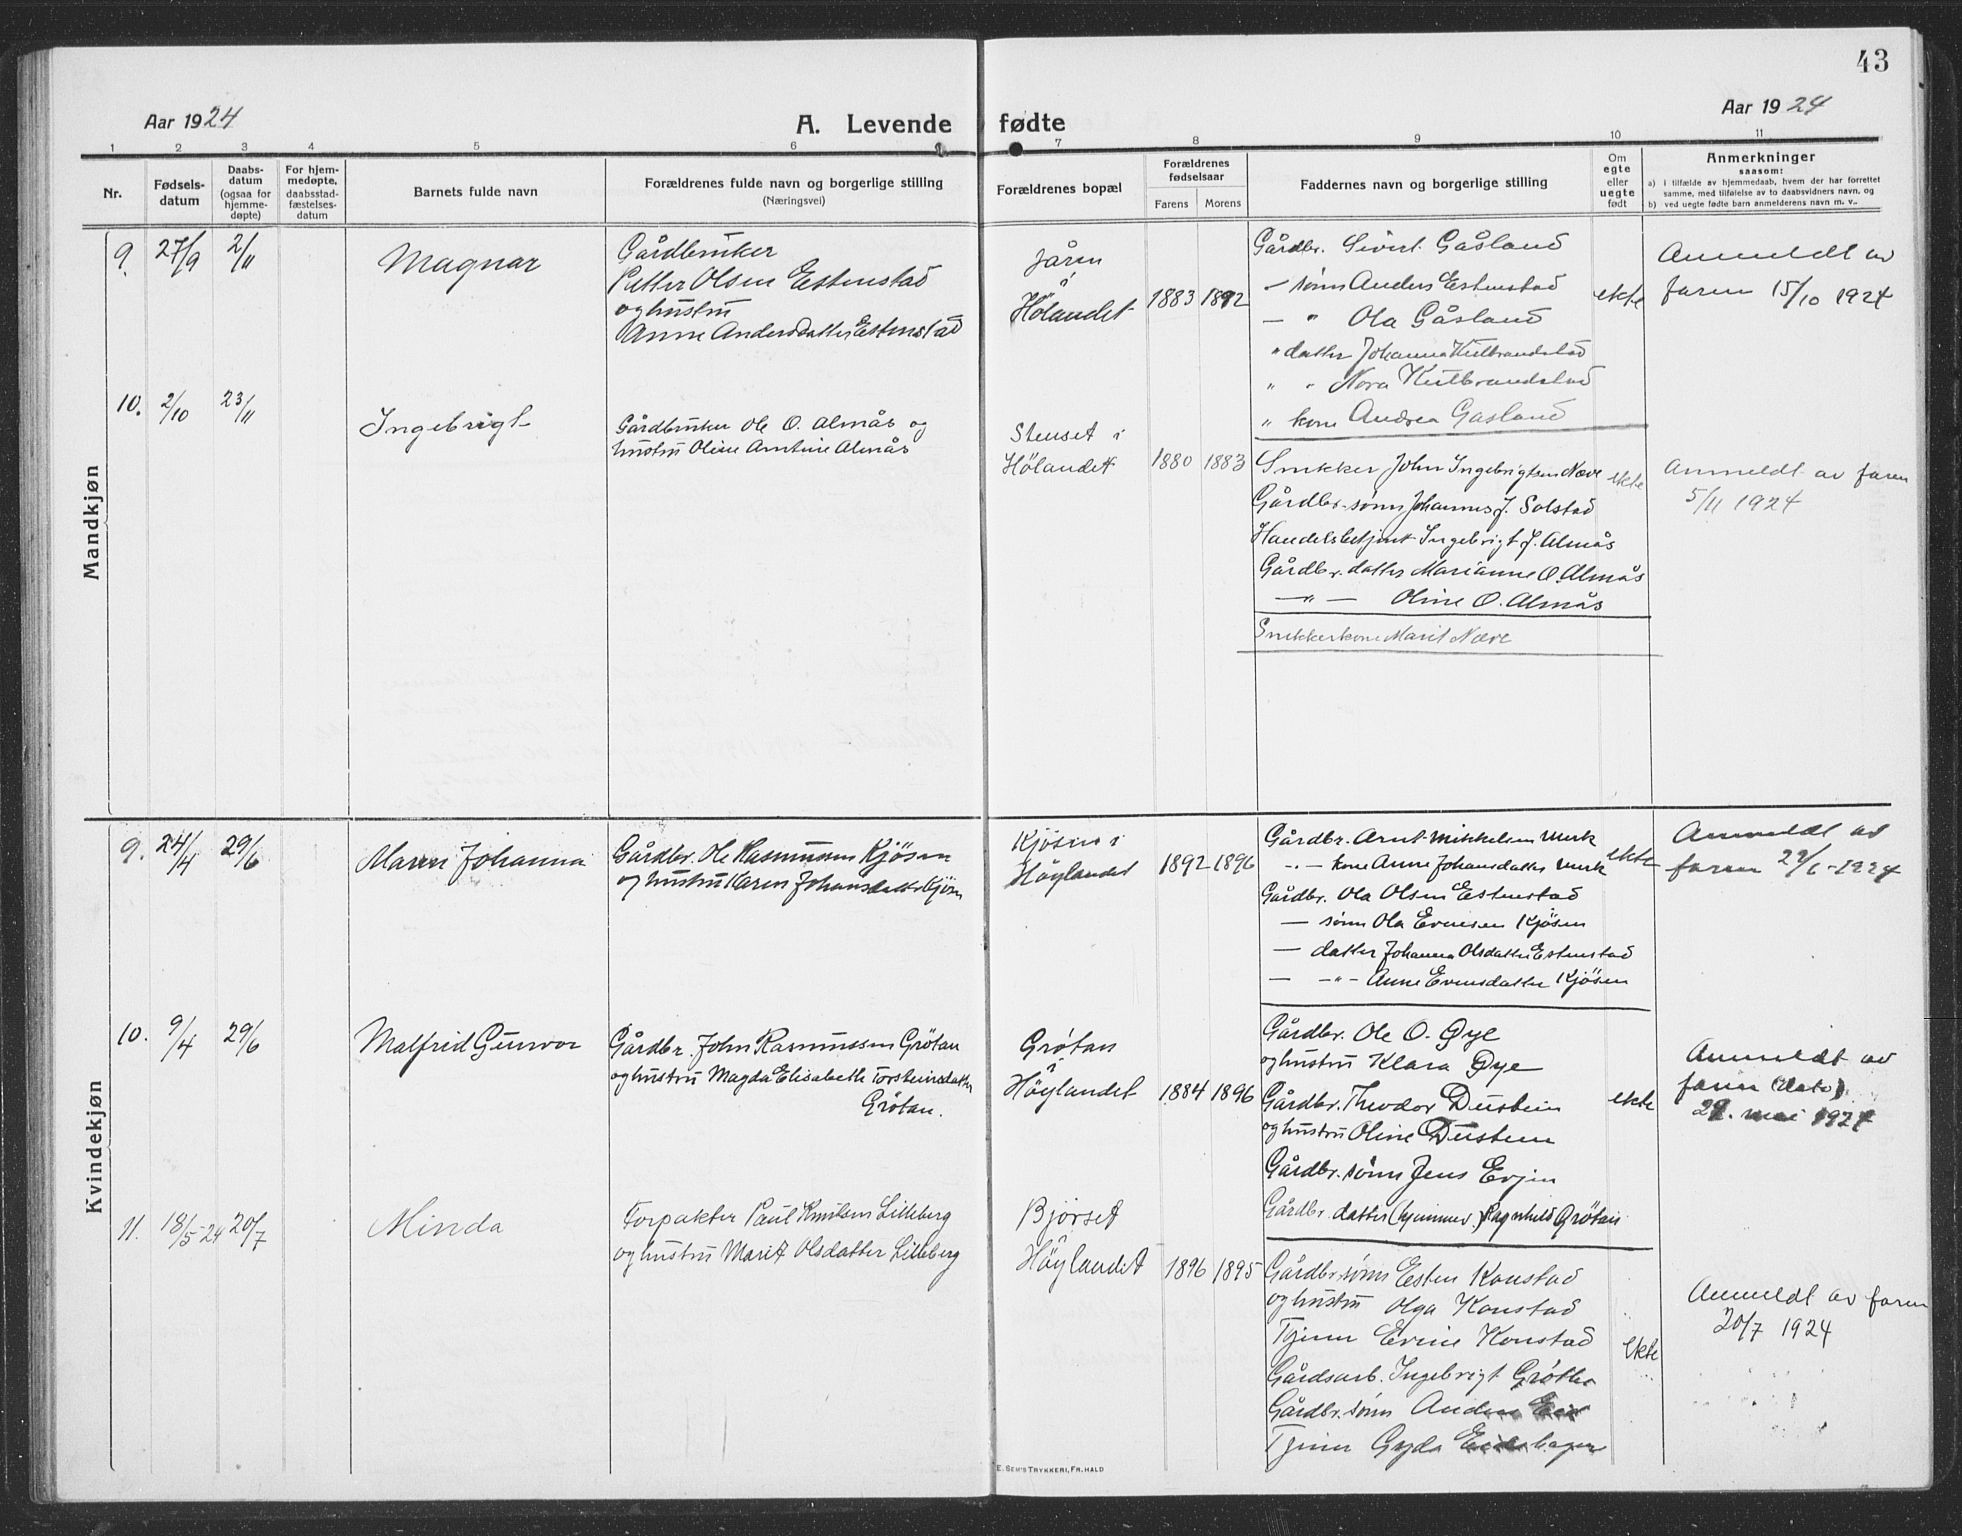 43
Aar 1924
A. Levende fødte
Aar 1924
1 2 3 4 5 6 7 8 9 10 11
Nr.
Fødsels-
datum
Daabs-
datum
(ogsaa for
hjemme-
døpte)
For hjem-
medøpte,
daabsstad-
fæstelses-
datum
Barnets fulde navn
Forældrenes fulde navn og borgerlige stilling
(Næringsvei)
Forældrenes bopæl
Forældrenes
fødselsaar
Farens
Morens
Faddernes navn og borgerlige stilling
Om
egte
eller
uegte
født
Anmerkninger
saasom:
a) i tilfælde av hjemmedaab, hvem der har forrettet
samme, med tilføielse av to daabsvidners navn, og
b) ved uegte fødte barn anmelderens navn m. v..
Mandkjøn
9. 27/9 2/11
Magnar
Gårdbruker
Petter Olsen Estenstad
og hustru
Anne Andersdatter Estenstad
Jåren
i
Hölandet
1883 1892
Gårdbr. Sivert Gåsland
— sönn Anders Estenstad
— " Ola Gåsland
" datter Johanna Kulbrandstad
" " Nora Kulbrandstad
" kone Andrea Gasland
ekte
Anmeldt av
faren 15/10 1924
10. 2/10 23/11
Ingebrigt
Gårdbruker Ole O. Almås og
hustru Oline Arntine Almås
Stenset i
Hölandet
1880 1883
Snikker John Ingebrigtsen Næve
Gårdbr. sönn Johannes J. Solstad
Handelsbetjent Ingebrigt J. Almås
Gårdbr. datter Marianne O. Almås
— " — Oline O. Almås
Snikkerkone Marit Næve
ekte
Anmeldt av faren
5/11 1924
Kvindekjøn
9. 24/4 29/6
Maren Johanna
Gårdbr. Ole Rasmussen Kjösen
og hustru Karen Johansdatter Kjösen
Kjösen i
Höylandet
1892 1896
Gårdbr. Arnt Mikkelsen Mærk
— " — kone Anne Johansdatter Mærk
Gårdbr. Ola Olsen Estenstad
— sönn Ola Evensen Kjösen
— datter Johanna Olsdatter Estenstad
— — " — Anne Evensdatter Kjösen
ekte
Anmeldt av
faren 29/6 - 1924
10. 9/4 29/6
Malfrid Gunvor
Gårdbr. John Rasmussen Grötan
og hustru Magda Elisabeth Torsteinsdatter
Grötan.
Grötan
i
Höylandet
1884 1896
Gårdbr. Ole O. Øye
og hustru Klara Øye
Gårdbr. Theodor Dustein
og hustru Oline Dustein
Gårdbr. sönn Jens Evjen
Gårdbr. datter (hjemmev.) Ragnhild Grötan
ekte
Anmeldt av
faren (dato)
29. mai 1924
11. 18/5-24 20/7
Minda
Forpakter Paul Knutsen Lilleberg
og hustru Marit Olsdatter Lilleberg
Bjørset
Höylandet
1896 1895
Gårdbr. sönn Esten Konstad
og hustru Olga Konstad
Tjener Evine Konstad
Gårdsarb. Ingebrigt Gröthe
Gårdbr. sönn Anders
Tjener Gyda
ekte
Anmeldt av faren
20/7 1924
E. SEM'S TRYKKERI, FR. HALD